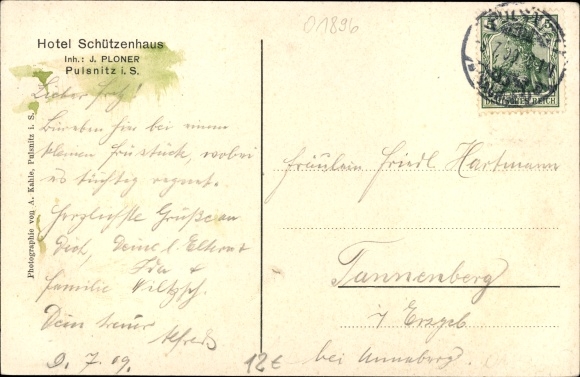 01896
Hotel Schützenhaus
Inh.: J. PLONER
Pulsnitz i. S.
Photographie von A. Kahle, Pulsnitz i. S.
DEUTSCHES REICH
Lieber
hier bei einem
kleinen Frühstück, wobei
es tüchtig regnet.
Herzlichste Grüße an
Dich, Deine l. Eltern
Ida &
Familie
Dein treuer
Alfred
9. 7. 09.
12€
Fräulein Friedl Hartmann
Tannenberg
i/ Erzgeb
bei Annaberg.